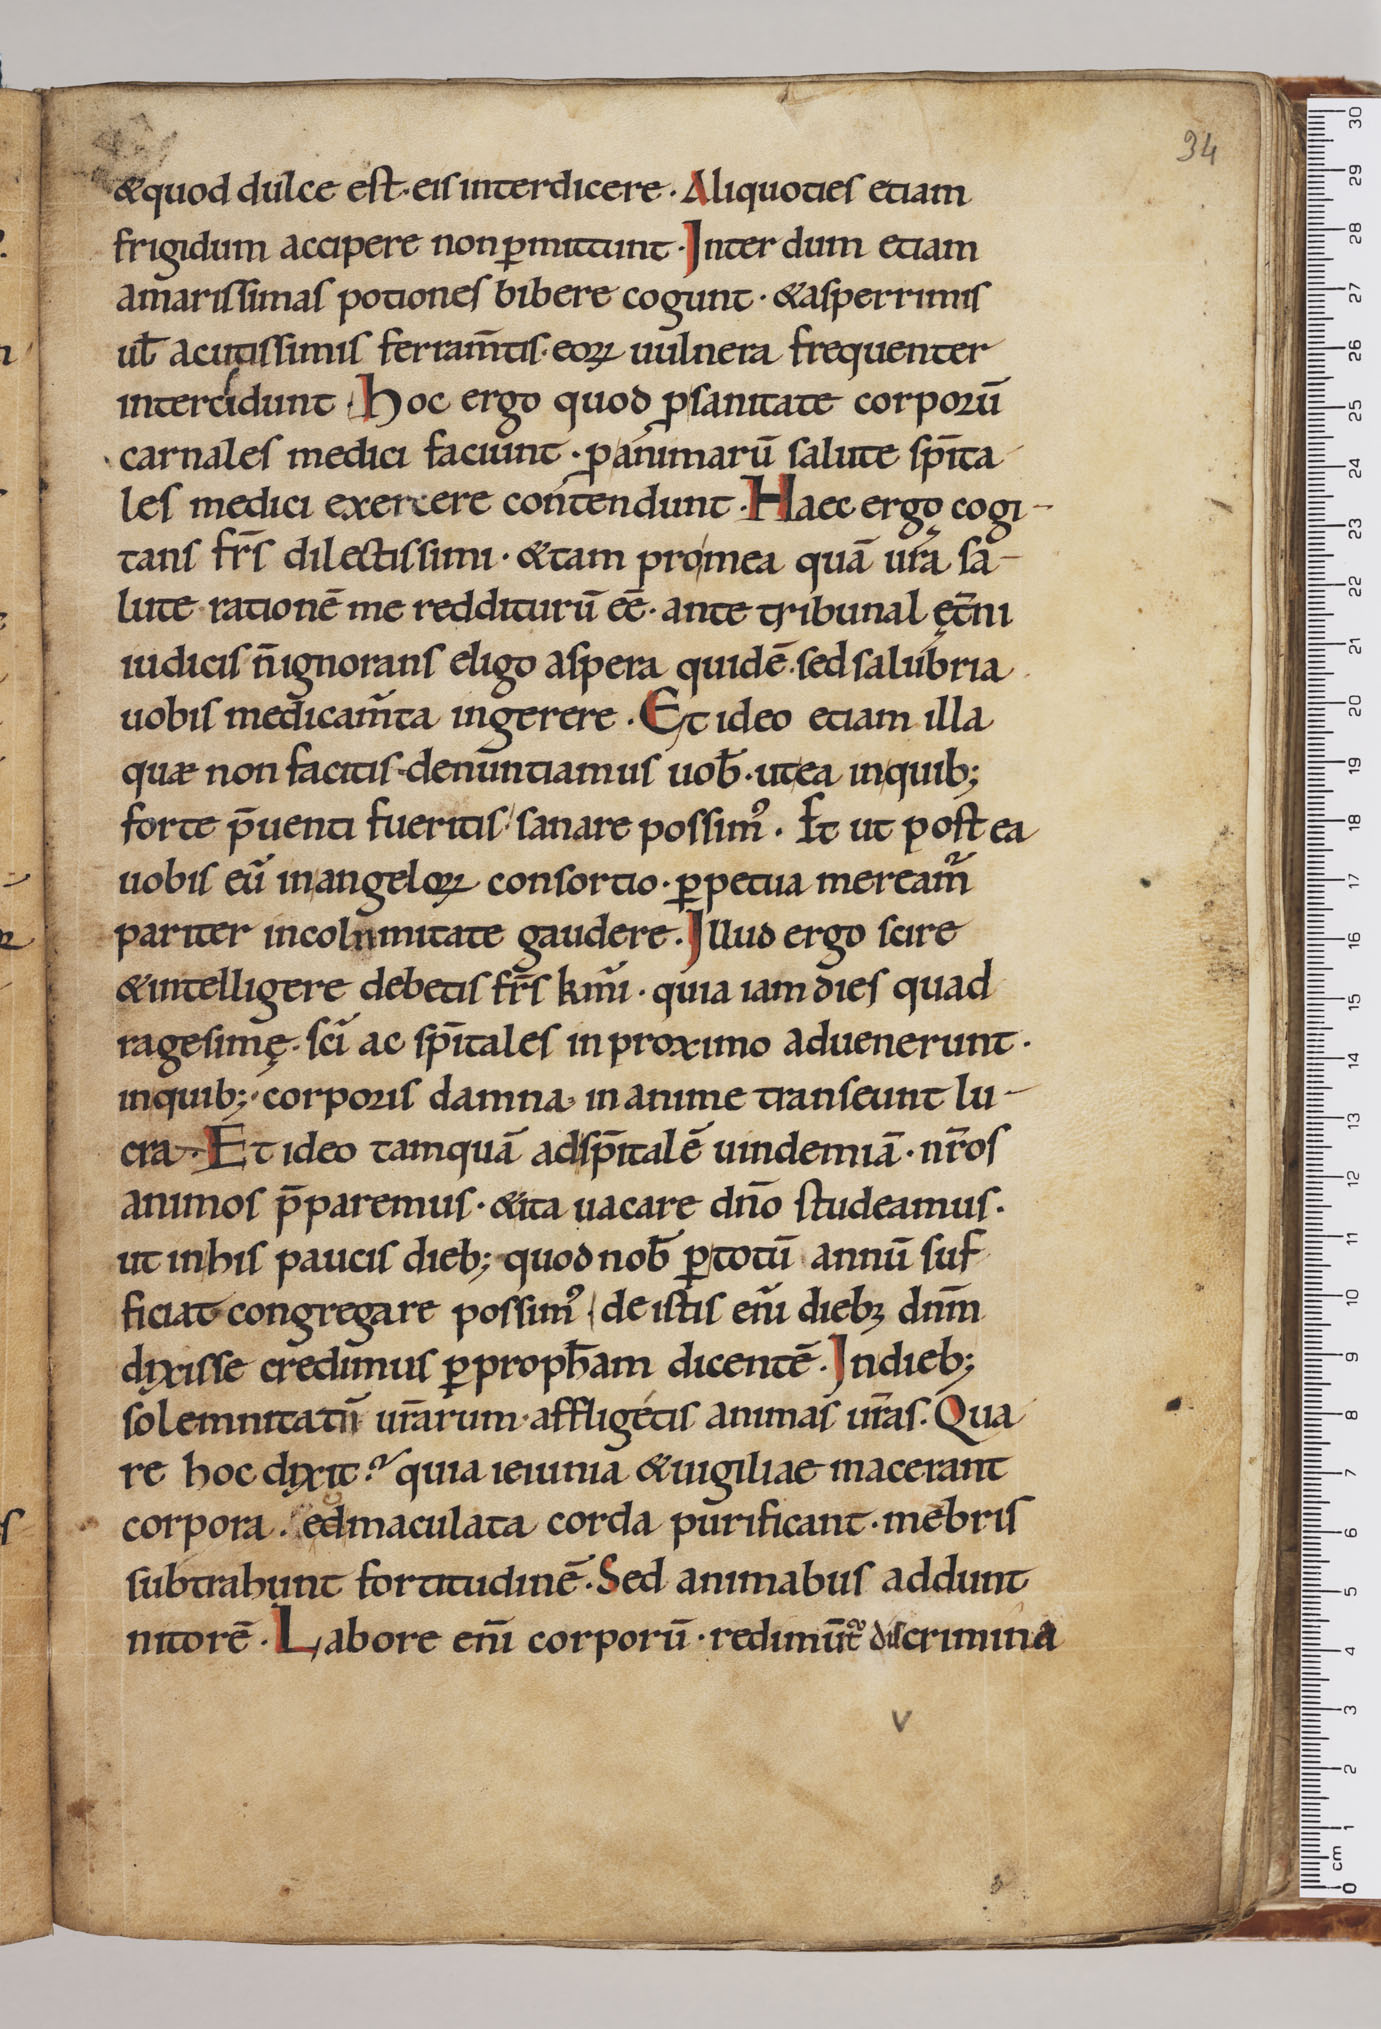 34
&quod dulce est· eis interdicere · Aliquoties etiam
frigidum accipere non ꝑmittunt · Inter dum etiam
amarissimas potiones bibere cogunt · &asperrimis
uł acutissimis ferram̄tis· eoꝝ uulnera frequenter
intercidunt · hoc ergo quod ꝓ sanitate corporū
carnales medici faciunt · ꝓ animarū salute sp̄ita
les medici exercere contendunt · Haec ergo cogi-
tans fr̄s dilectissimi · &tam pro mea quā ur̄a sa-
lute rationē me redditurū eē· ante tribunal ęt̄ni
iudicis n̄ ignorans eligo aspera quidē· sed salubria
uobis medicam̄ta ingerere · Et ideo etiam illa
quæ non facitis· denuntiamus uob̄ · ut ea in quib;
forte p̄uenti fueritis· sanare possim᾿ · Et ut post ea
uobis cū in angeloꝝ consortio · ꝑpetua meream̄
pariter incolumitate gaudere · Illud ergo scire
&intelligere debetis fr̄s km̄i · quia iam dies quad
ragesimę· sc̄i ac sp̄itales in proximo aduenerunt ·
in quib; · corporis damna· in anime transeunt lu-
cra · Et ideo tamquā ad sp̄italē uindemiā · nr̄os
animos p̄paremus · &ita uacare dn̄o studeamus ·
ut in his paucis dieb; quod nob̄ ꝑ totū annū suf
ficiat congregare possim᾿ · de istis eni̅ dieb; dnm̄
dixisse credimus ꝑ proph̄am dicentē · In dieb;
solemnitatū ur̄arum· affligetis animas ur̄as · Qua
re hoc dixit? quia ieiunia &uigiliae macerant
corpora · sed maculata corda purificant · mēbris
subtrahunt fortitudinē · Sed animabus addunt
nitorē · Labore eni̅ corporū · redimūt᾿ discrimina
v